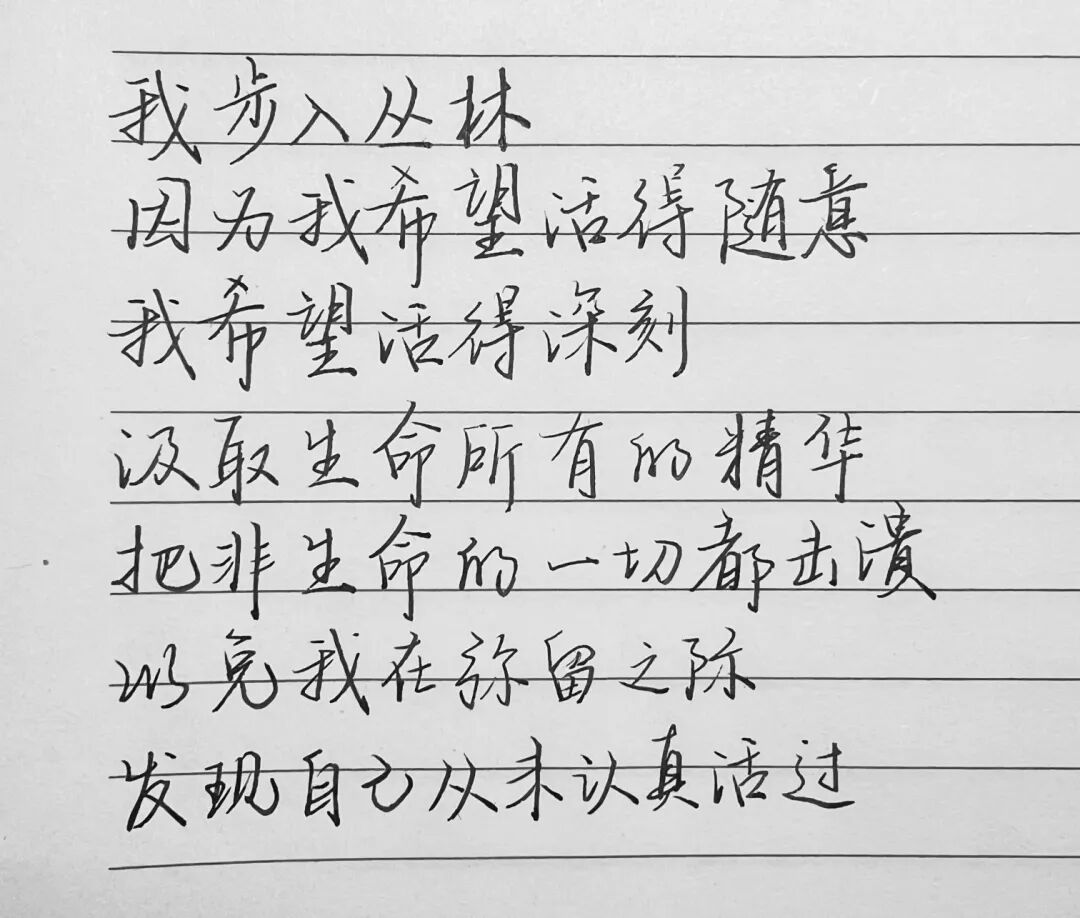 我步入丛林
因为我希望活得随意
我希望活得深刻
汲取生命所有的精华
把非生命的一切都击溃
以免我在弥留之际
发现自己从未认真活过